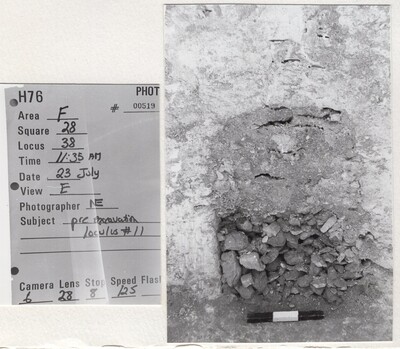 H76 PHOT
# 00519
Area F
Square 28
Locus 38
Time 11:35 AM
Date 23 July
View E
Photographer NE
Subject pre excavation
loculus #11
Camera Lens Stop Speed Flas
6 28 8 125